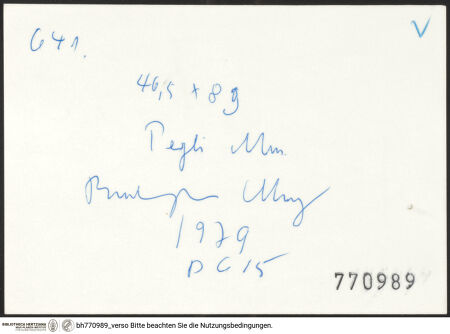 641.
V
46,5 x 89
Pegli Mus.
1979
D C 15
770989
BIBLIOTHECA HERTZIANA
bh770989_verso Bitte beachten Sie die Nutzungsbedingungen.